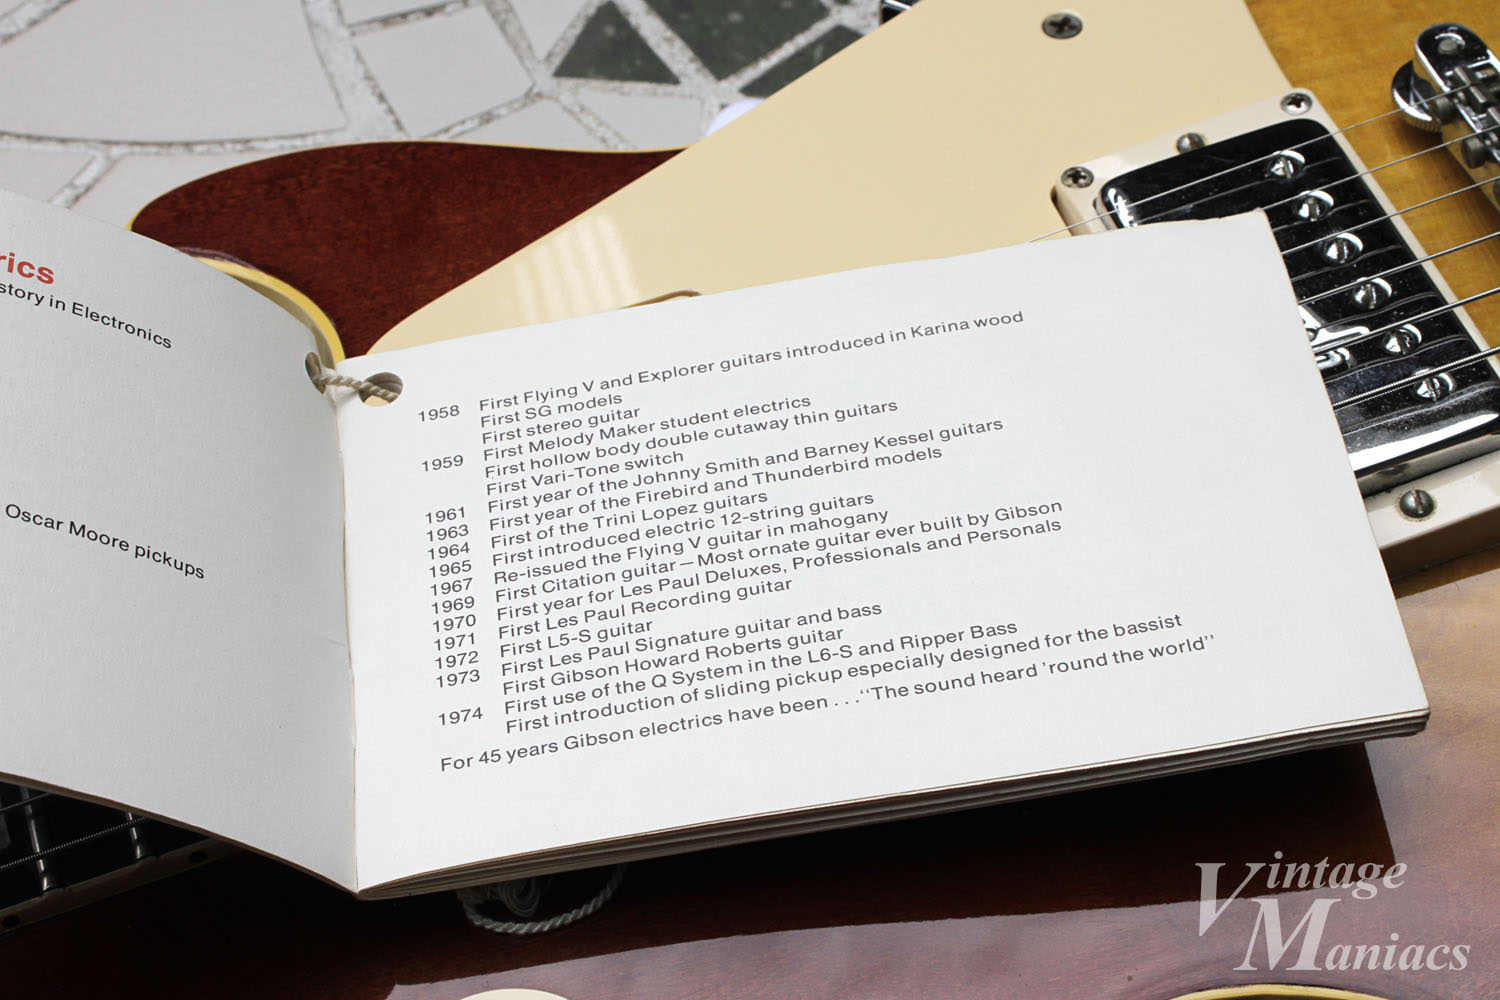 rics
story in Electronics
Oscar Moore pickups
1958 First Flying V and Explorer guitars introduced in Karina wood
First SG models
First stereo guitar
1959 First Melody Maker student electrics
First hollow body double cutaway thin guitars
First Vari-Tone switch
1961 First year of the Johnny Smith and Barney Kessel guitars
1963 First year of the Firebird and Thunderbird models
1964 First of the Trini Lopez guitars
1965 First introduced electric 12-string guitars
1967 Re-issued the Flying V guitar in mahogany
1969 First Citation guitar—Most ornate guitar ever built by Gibson
1970 First year for Les Paul Deluxes, Professionals and Personals
1971 First Les Paul Recording guitar
1972 First L5-S guitar
1973 First Les Paul Signature guitar and bass
First Gibson Howard Roberts guitar
1974 First use of the Q System in the L6-S and Ripper Bass
First introduction of sliding pickup especially designed for the bassist
For 45 years Gibson electrics have been . . .‘‘The sound heard ’round the world’’
Vintage
Maniacs